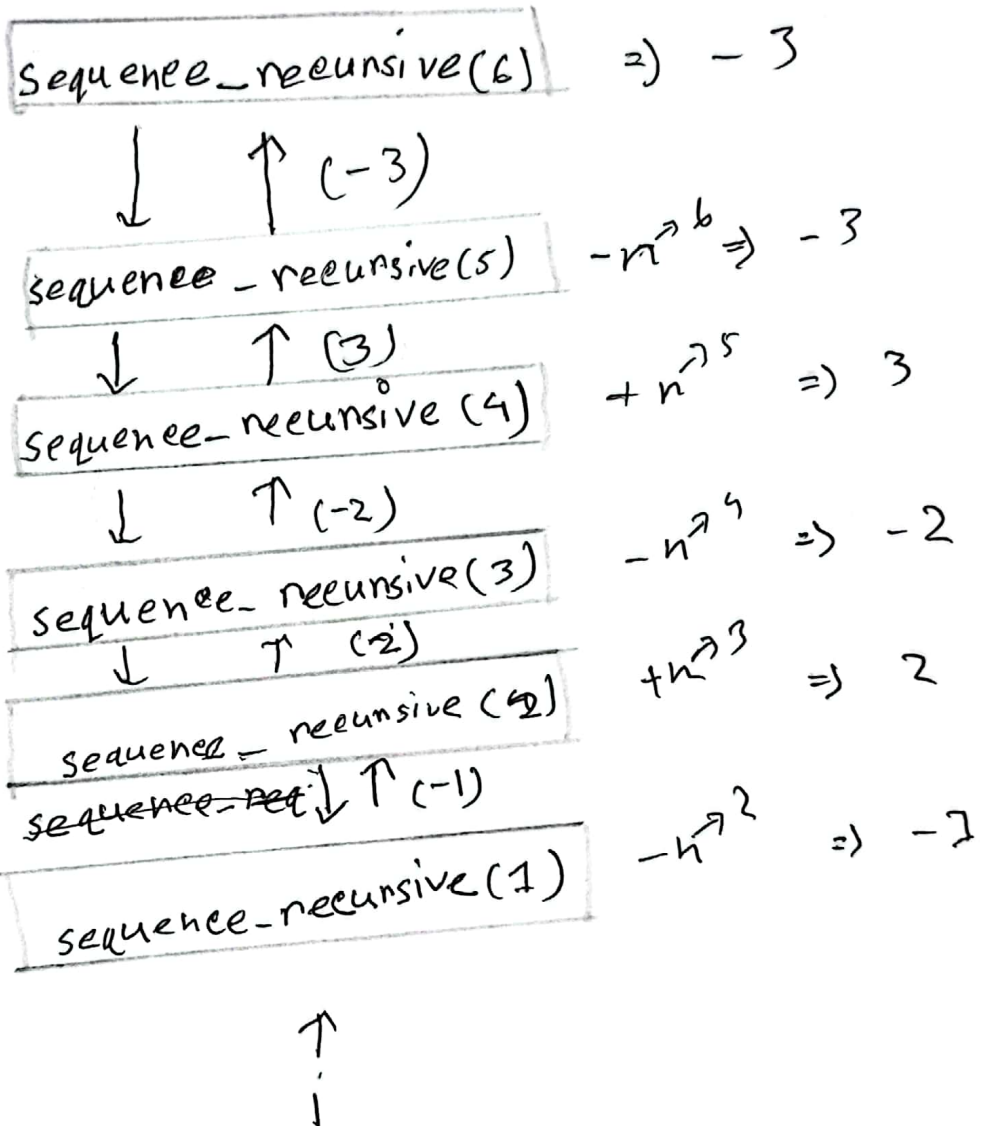 sequence_recursive(6) => - 3
↓ ↑ (-3)
sequence_recursive(5) -n→6 => - 3
↓ ↑ (3)
sequence_recursive(4) +n→5 => 3
↓ ↑ (-2)
sequence_recursive(3) -n→4 => -2
↓ ↑ (2)
sequence_recursive(2) +n→3 => 2
sequence_rec ↓ ↑ (-1)
sequence_recursive(1) -n→2 => -1
↑